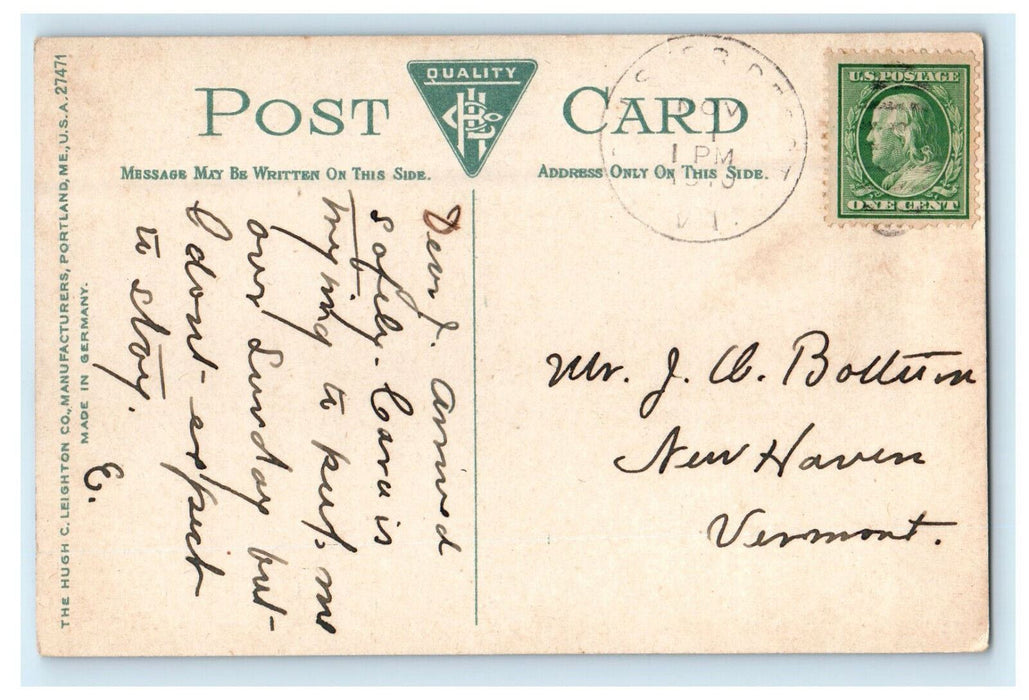 POST CARD
QUALITY
MESSAGE MAY BE WRITTEN ON THIS SIDE.
ADDRESS ONLY ON THIS SIDE.
U.S. POSTAGE
ONE CENT
NOV
1
1 PM
VT.
THE HUGH C. LEIGHTON CO., MANUFACTURERS, PORTLAND, ME., U.S.A. 27471
MADE IN GERMANY.
Dear J. Arrived
safely. Cara is
trying to keep me
over Sunday but
I don't expect
to stay.
E.
Mr. J. A.
New Haven
Vermont.